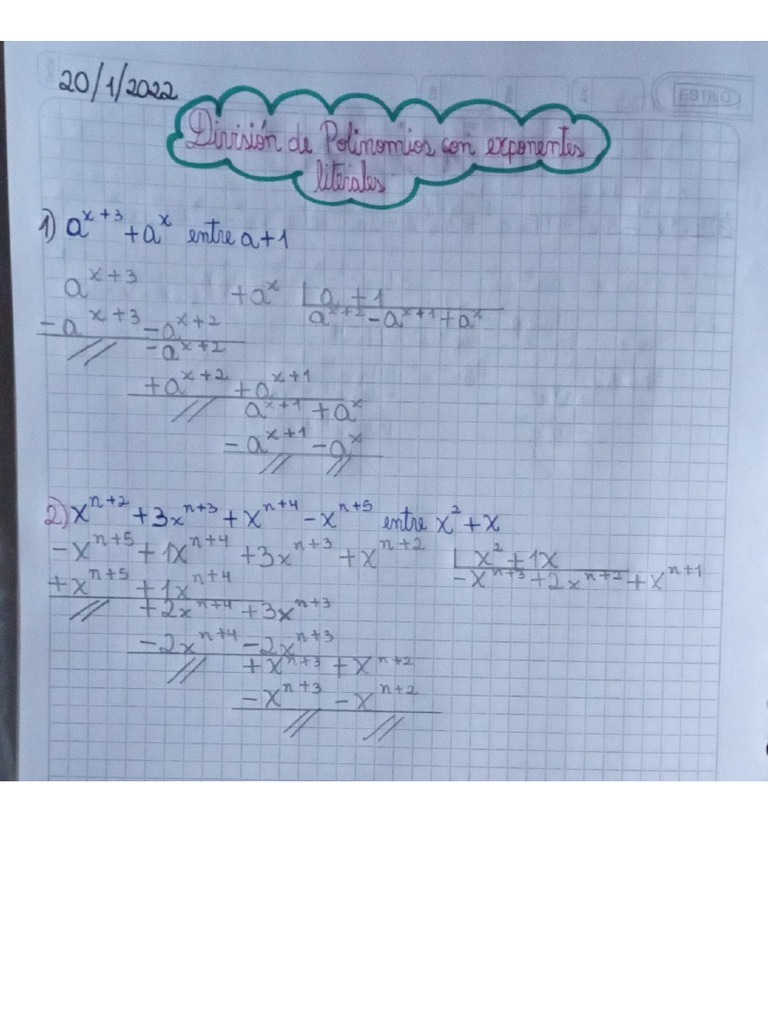 ESTILO
20/1/2022
División de Polinomios con exponentes
literales
1) a^{x+3} + a^x entre a+1
a^{x+3} +a^x | a +1
-a^{x+3} -a^{x+2} a^{x+2} -a^{x+1} +a^x
// -a^{x+2}
+a^{x+2} +a^{x+1}
// a^{x+1} +a^x
-a^{x+1} -a^x
// //
2) x^{n+2} +3x^{n+3} +x^{n+4} -x^{n+5} entre x^2 +x
-x^{n+5} +1x^{n+4} +3x^{n+3} +x^{n+2} | x^2 +1x
+x^{n+5} +1x^{n+4} -x^{n+3} +2x^{n+2} +x^{n+1}
// +2x^{n+4} +3x^{n+3}
-2x^{n+4} -2x^{n+3}
// +x^{n+3} +x^{n+2}
-x^{n+3} -x^{n+2}
// //